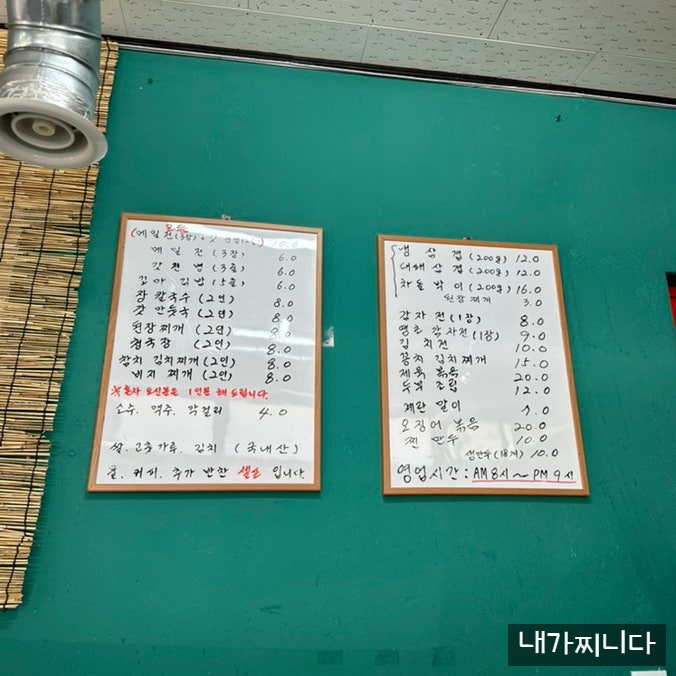 모듬
(메밀전(3장)+갓전병(2줄) 10.0
메밀전(3장) 6.0
갓전병(3줄) 6.0
꼬마김밥(5줄) 6.0
장칼국수(2인) 8.0
갓만둣국(2인) 8.0
된장찌개(2인) 8.0
청국장 (2인) 8.0
참치김치찌개(2인) 8.0
비지찌개(2인) 8.0
※혼자 오신분은 1인분 해드립니다.
소주. 맥주. 막걸리 4.0
쌀.고춧가루.김치 (국내산)
물.커피.추가반찬 셀프 입니다.
냉삼겹(200g) 12.0
대패삼겹(200g) 12.0
차돌박이(200g) 16.0
된장찌개 3.0
감자전(1장) 8.0
명란감자전(1장) 9.0
김치전 10.0
꽁치김치찌개 15.0
제육볶음 20.0
두부조림 12.0
계란말이 7.0
오징어볶음 20.0
찐만두 10.0
생만두(18개) 10.0
영업시간 : AM 8시 ~ PM 9시
내가찌니다